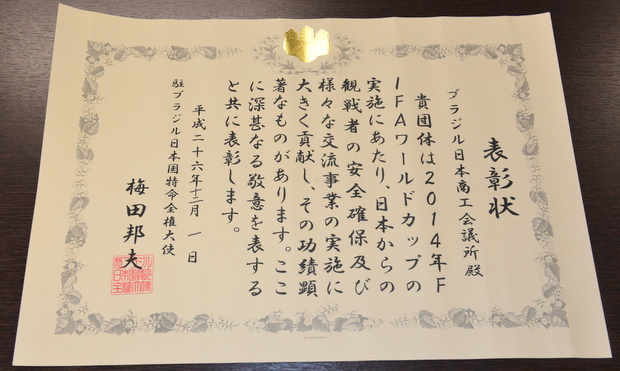 表彰状
ブラジル日本商工会議所殿
貴団体は2014年F
IFAワールドカップの
実施にあたり、日本からの
観戦者の安全確保及び
様々な交流事業の実施に
大きく貢献し、その功績顕
著なものがあります。ここ
に深甚なる敬意を表する
と共に表彰します。
平成二十六年十二月一日
駐ブラジル日本国特命全権大使
梅田邦夫